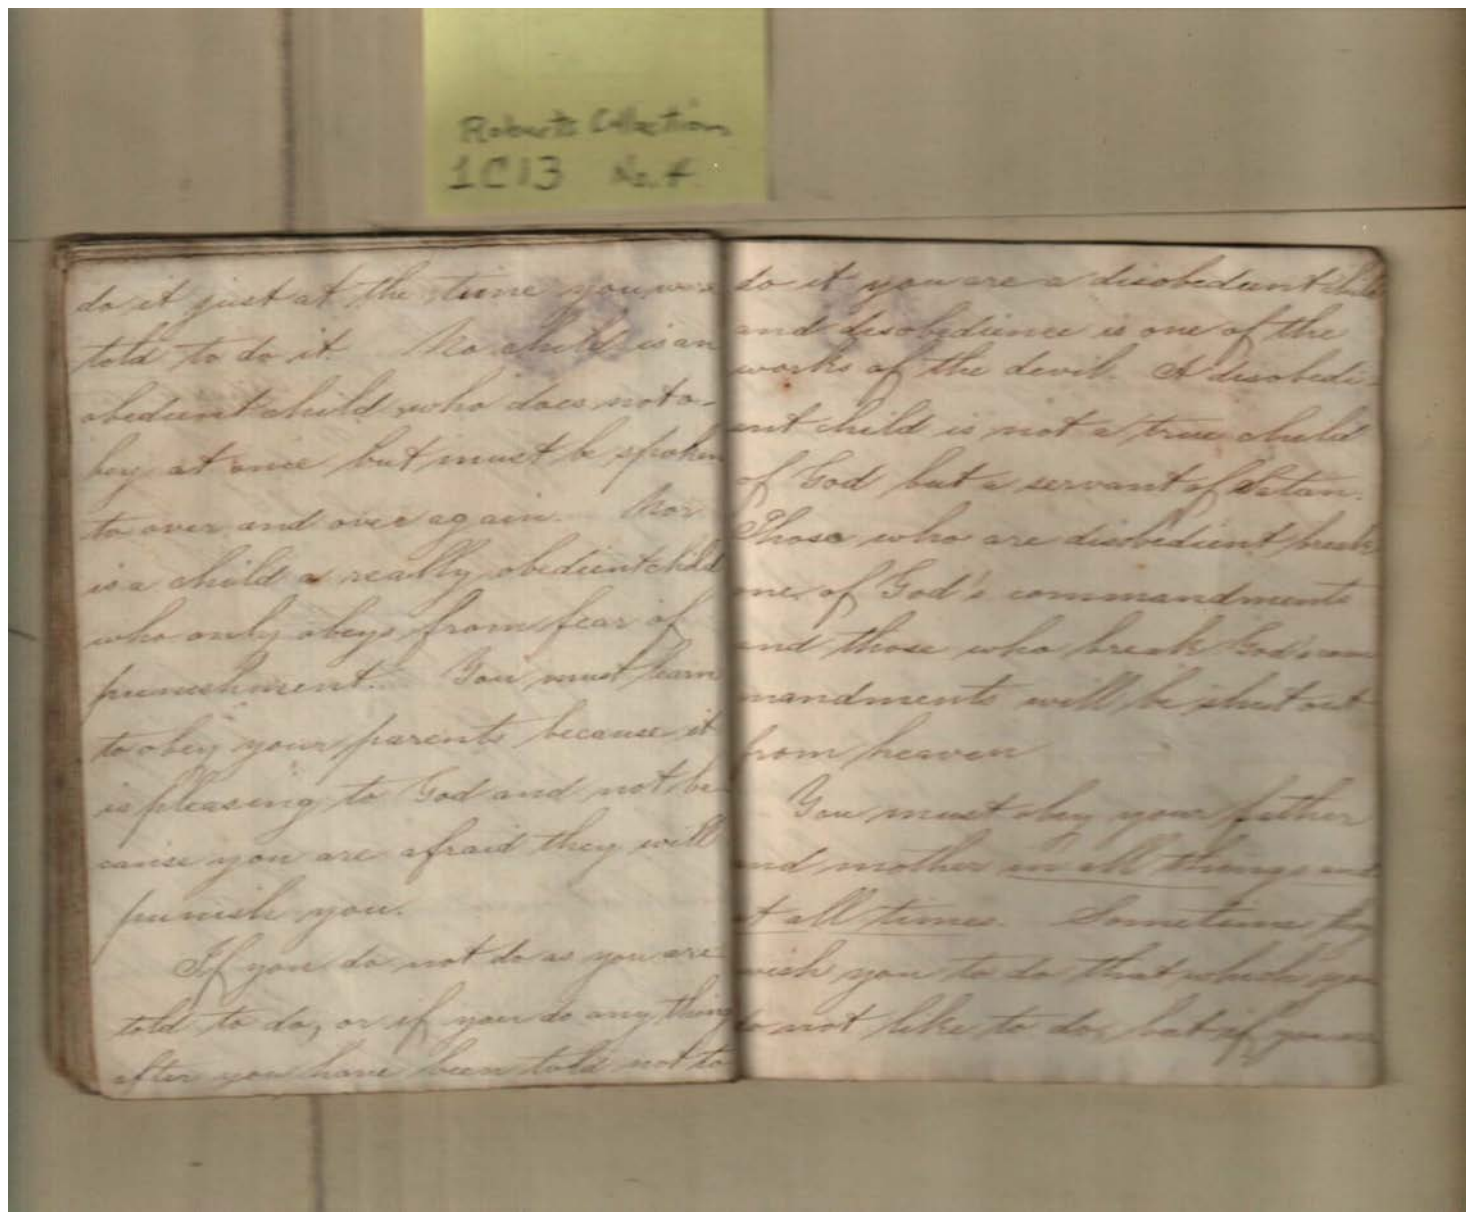 Roberts Collection
1C13 No. 4
do it just at the time you were
told to do it. No child is an
obedient child who does not o-
bey at once but must be spoken
to over and over again. Nor
is a child a really obedient child
who only obeys from fear of
punishment. You must learn
to obey your parents because it
is pleasing to God and not be
cause you are afraid they will
punish you.
If you do not do as you are
told to do, or if you do any thing
after you have been told not to
do it you are a disobedient child
and disobedience is one of the
works of the devil. A disobedi-
ent child is not a true child
of God but a servant of Satan.
Those who are disobedient break
one of God's commandments
and those who break God's com
mandments will be shut out
from heaven
You must obey your father
and mother in all things and
at all times. Sometimes they
wish you to do that which you
do not like to do, but if you